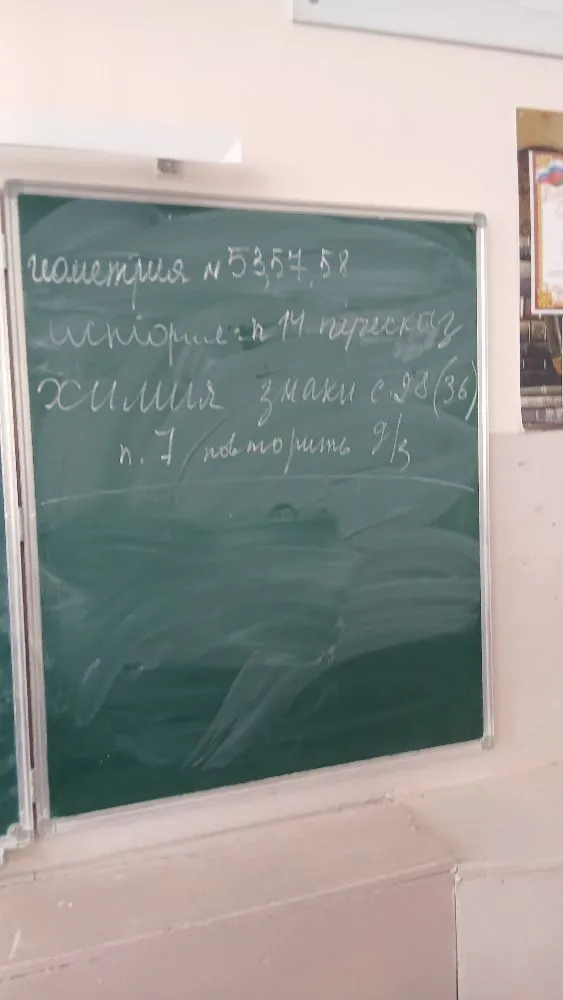 геометрия № 53,57,58
история: п 14 пересказ
химия знаки с. 98 (36)
п. 7 повторить д/з